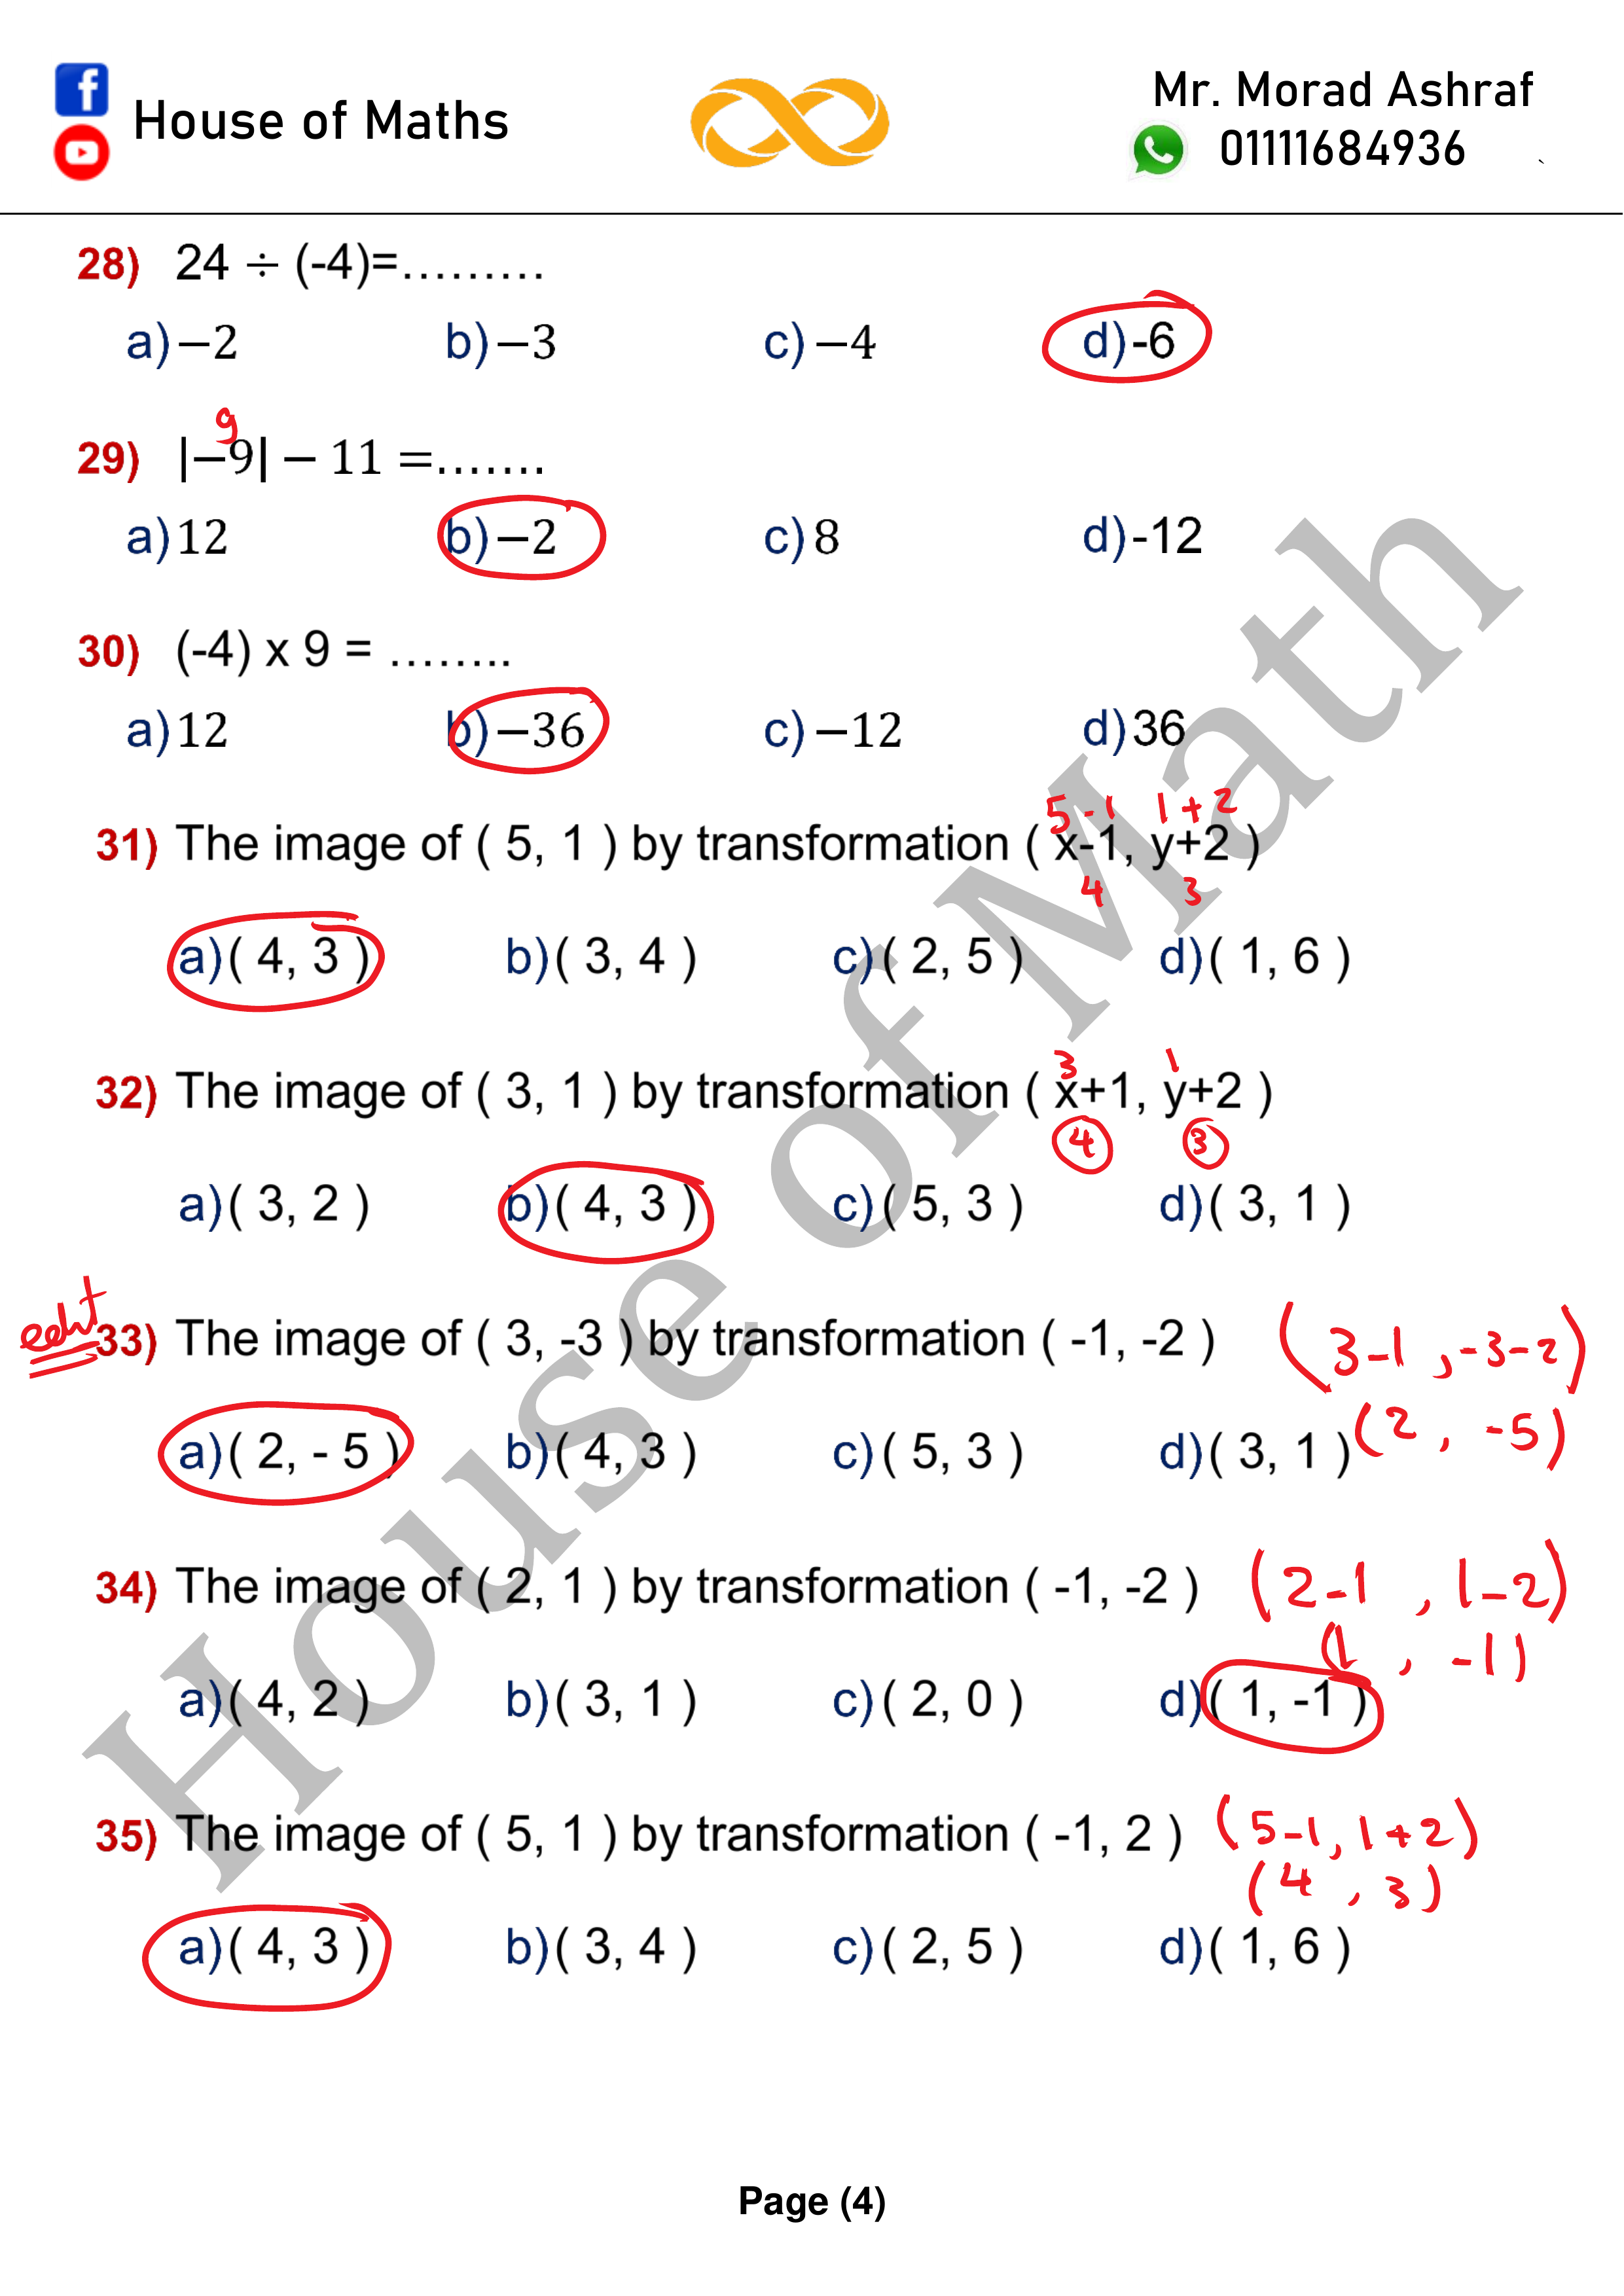 House of Maths
Mr. Morad Ashraf
01111684936
28) 24 ÷ (-4)=.........
a) −2 b) −3 c) −4 d) -6
9
29) |−9| − 11 =.......
a) 12 b) −2 c) 8 d) -12
30) (-4) x 9 = ........
a) 12 b) −36 c) −12 d) 36
5-1 1+2
31) The image of ( 5, 1 ) by transformation ( x-1, y+2 )
4 3
a) ( 4, 3 ) b) ( 3, 4 ) c) ( 2, 5 ) d) ( 1, 6 )
3 1
32) The image of ( 3, 1 ) by transformation ( x+1, y+2 )
4 3
a) ( 3, 2 ) b) ( 4, 3 ) c) ( 5, 3 ) d) ( 3, 1 )
33) The image of ( 3, -3 ) by transformation ( -1, -2 ) (3-1 , -3-2)
a) ( 2, - 5 ) b) ( 4, 3 ) c) ( 5, 3 ) d) ( 3, 1 ) (2 , -5)
34) The image of ( 2, 1 ) by transformation ( -1, -2 ) (2-1 , 1-2)
(1 , -1)
a) ( 4, 2 ) b) ( 3, 1 ) c) ( 2, 0 ) d) ( 1, -1 )
35) The image of ( 5, 1 ) by transformation ( -1, 2 ) (5-1, 1+2)
(4 , 3)
a) ( 4, 3 ) b) ( 3, 4 ) c) ( 2, 5 ) d) ( 1, 6 )
House of Math
Page (4)